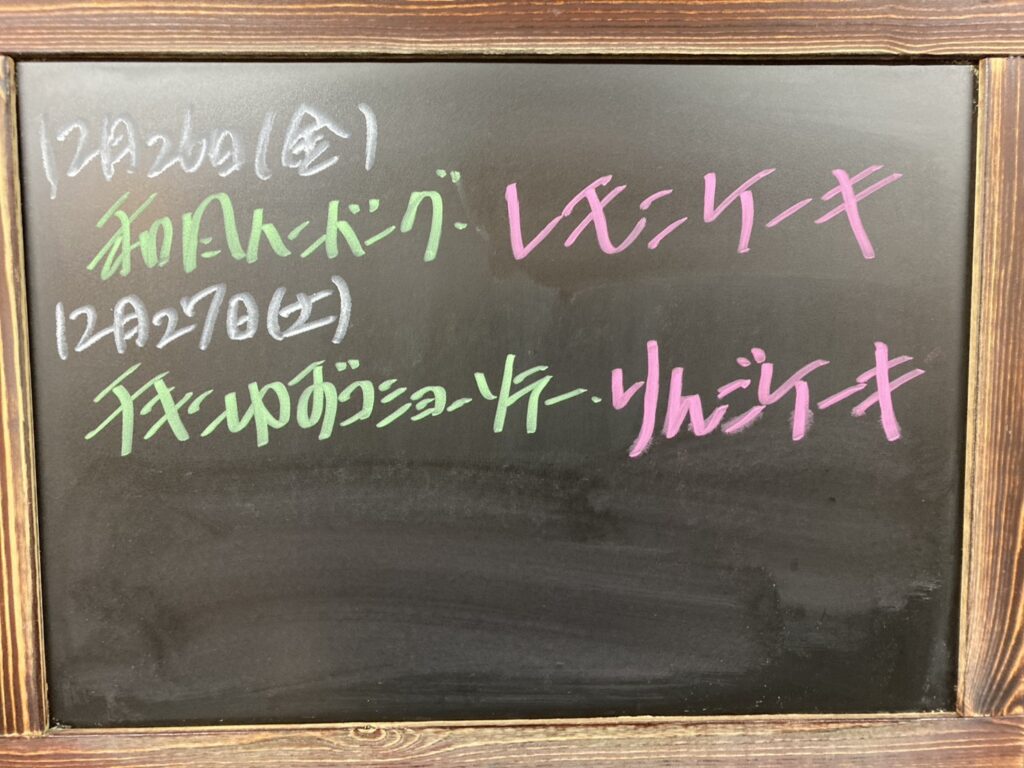 12月26日(金)
和風ハンバーグ・レモンケーキ
12月27日(土)
チキンゆずコショーソテー・りんごケーキ